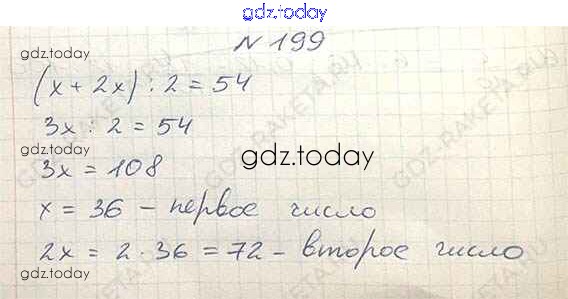 gdz.today
N 199
gdz.today
(x + 2x) : 2 = 54
3x : 2 = 54
gdz.today
3x = 108
gdz.today
x = 36 - первое число
2x = 2 · 36 = 72 - второе число
gdz.today